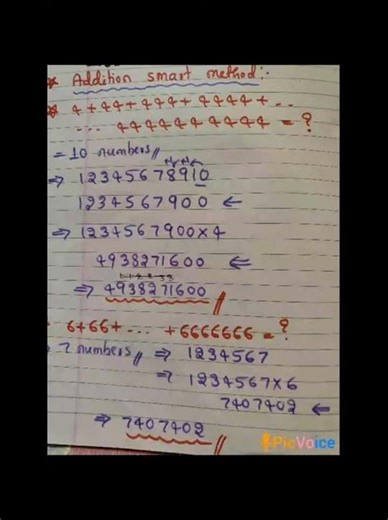 * Addition smart method:-
* 4+44+444+4444+..
... 4444444444 = ?
= 10 numbers//
⇒ 12345678910
1234567900 ←
⇒ 1234567900×4
4938271600 ⇐
⇒ 4938271600 //
6+66+... +6666666 = ?
7 numbers// ⇒ 1234567
⇒ 1234567×6
7407402 ←
⇒ 7407402 //
PicVoice